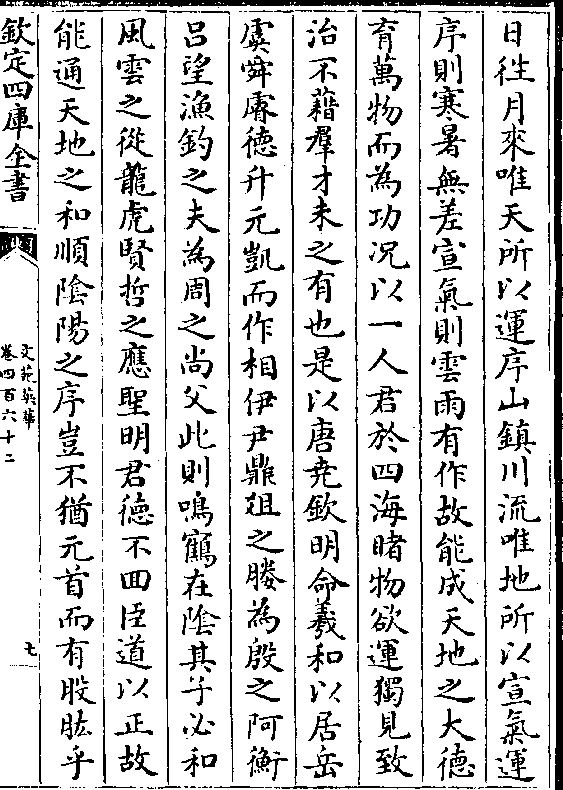 日往月來唯天所以運序山鎮川流唯地所以宣氣運
序則寒暑無差宣氣則雲雨有作故能成天地之大德
育萬物而為功况以一人君於四海睹物欲運獨見致
治不藉羣才未之有也是以唐堯欽明命羲和以居岳
虞舜睿德升元凱而作相伊尹鼎俎之媵為殷之阿衡
呂望漁釣之夫為周之尚父此則鳴鶴在陰其子必和
風雲之從龍虎賢哲之應聖明君德不回臣道以正故
能通天地之和順陰陽之序豈不猶元首而有股肱乎
欽定四庫全書
文苑英華
卷四百六十二
七